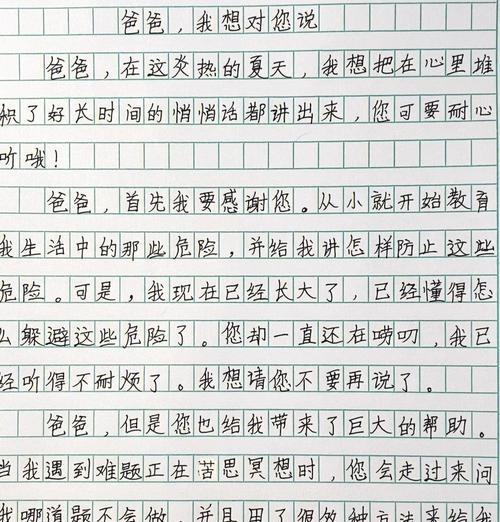 爸爸，我想对您说
爸爸，在这炎热的夏天，我想把在心里堆
积了好长时间的悄悄话都讲出来，您可要耐心
听哦！
爸爸，首先我要感谢您。从小就开始教育
我生活中的那些危险，并给我讲怎样防止这些
危险。可是，我现在已经长大了，已经懂得怎
么躲避这些危险了。您却一直还在唠叨，我已
经听得不耐烦了。我想请您不要再说了。
爸爸，但是您也给我带来了巨大的帮助。
当我遇到难题正在苦思冥想时，您会走过来问
我哪道题不会做，并且用了很多种方法来给我